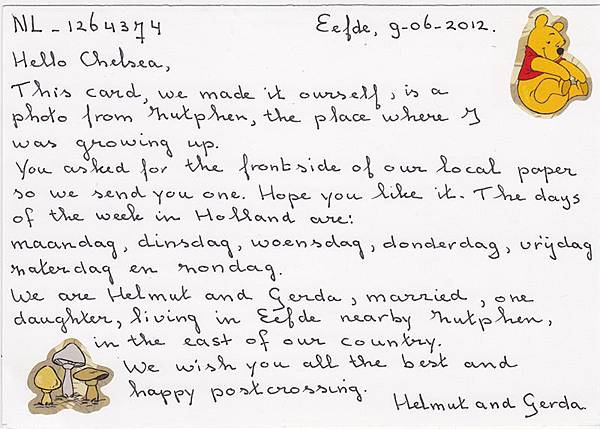 NL - 1264374 Eefde, 9-06-2012.
Hello Chelsea,
This card, we made it ourself, is a
photo from Zutphen, the place where I
was growing up.
You asked for the frontside of our local paper
so we send you one. Hope you like it. The days
of the week in Holland are:
maandag, dinsdag, woensdag, donderdag, vrijdag
zaterdag en zondag.
We are Helmut and Gerda, married, one
daughter, living in Eefde nearby Zutphen,
in the east of our country.
We wish you all the best and
happy postcrossing.
Helmut and Gerda